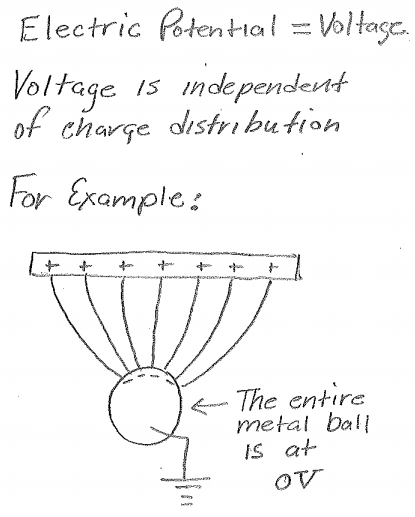 Electric Potential = Voltage.
Voltage is independent
of charge distribution
For Example:
+ + + + + + +
The entire
metal ball
is at
0V